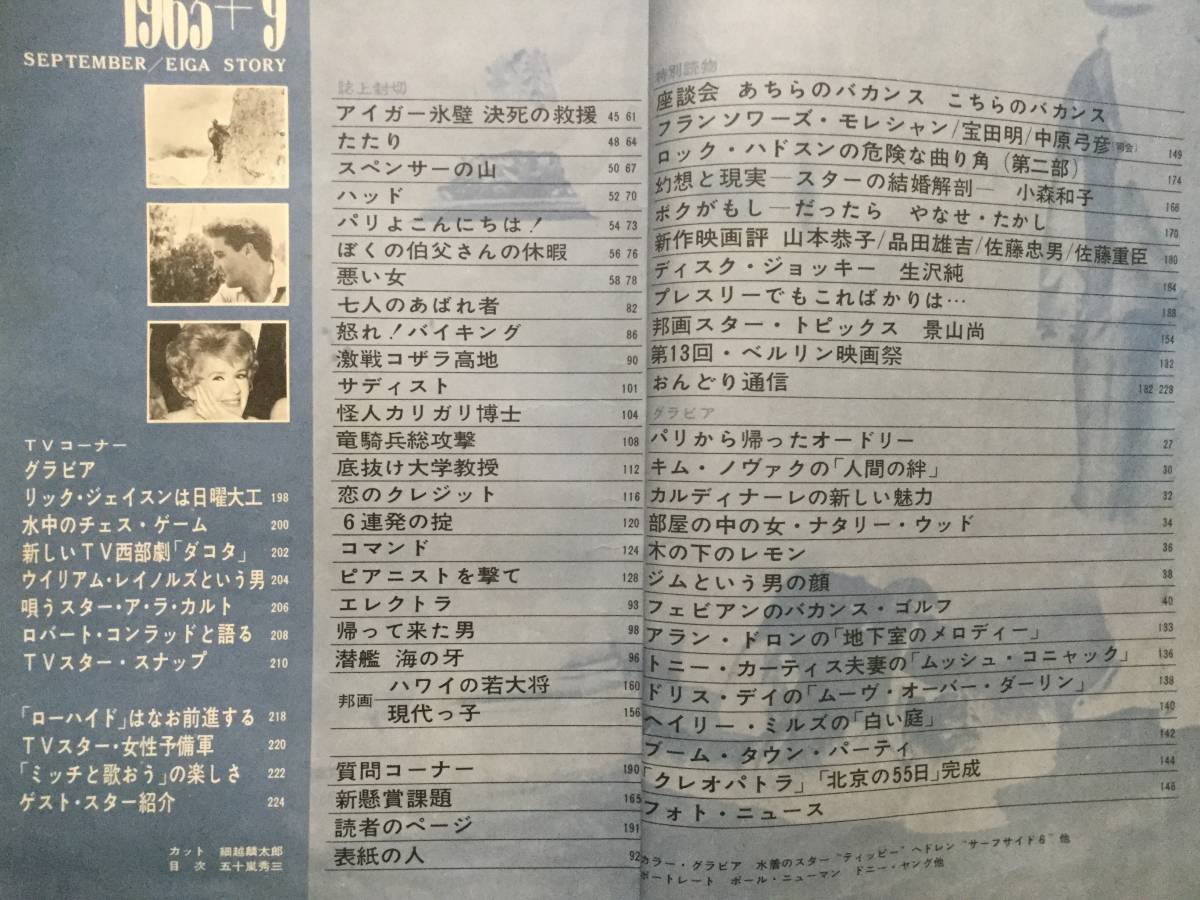 1963+9
SEPTEMBER/EIGA STORY
TVコーナー
グラビア
リック・ジェイスンは日曜大工 198
水中のチェス・ゲーム 200
新しいTV西部劇「ダコタ」 202
ウイリアム・レイノルズという男 204
唄うスター・ア・ラ・カルト 206
ロバート・コンラッドと語る 208
TVスター・スナップ 210
「ローハイド」はなお前進する 218
TVスター・女性予備軍 220
「ミッチと歌おう」の楽しさ 222
ゲスト・スター紹介 224
カット 細越麟太郎
目次 五十嵐秀三
誌上封切
アイガー氷壁 決死の救援 45 61
たたり 48 64
スペンサーの山 50 67
ハッド 52 70
パリよこんにちは! 54 73
ぼくの伯父さんの休暇 56 76
悪い女 58 78
七人のあばれ者 82
怒れ!バイキング 86
激戦コザラ高地 90
サディスト 101
怪人カリガリ博士 104
竜騎兵総攻撃 108
底抜け大学教授 112
恋のクレジット 116
6連発の掟 120
コマンド 124
ピアニストを撃て 128
エレクトラ 93
帰って来た男 98
潜艦 海の牙 96
邦画 ハワイの若大将 160
現代っ子 156
質問コーナー 190
新懸賞課題 165
読者のページ 191
表紙の人 92
特別読物
座談会 あちらのバカンス こちらのバカンス
フランソワーズ・モレシャン/宝田明/中原弓彦(司会) 149
ロック・ハドスンの危険な曲り角(第二部) 174
幻想と現実―スターの結婚解剖― 小森和子 166
ボクがもし―だったら やなせ・たかし 170
新作映画評 山本恭子/品田雄吉/佐藤忠男/佐藤重臣 180
ディスク・ジョッキー 生沢純 184
プレスリーでもこればかりは… 188
邦画スター・トピックス 景山尚 154
第13回・ベルリン映画祭 132
おんどり通信 182 228
グラビア
パリから帰ったオードリー 27
キム・ノヴァクの「人間の絆」 30
カルディナーレの新しい魅力 32
部屋の中の女・ナタリー・ウッド 34
木の下のレモン 36
ジムという男の顔 38
フェビアンのバカンス・ゴルフ 40
アラン・ドロンの「地下室のメロディー」 133
トニー・カーティス夫妻の「ムッシュ・コニャック」 136
ドリス・デイの「ムーヴ・オーバー・ダーリン」 138
ヘイリー・ミルズの「白い庭」 140
ブーム・タウン・パーティ 142
「クレオパトラ」「北京の55日」完成 144
フォト・ニュース 146
カラー・グラビア 水着のスター "ティッピー" ヘドレン "サーフサイド6" 他
ポートレート ポール・ニューマン ドニー・ヤング他